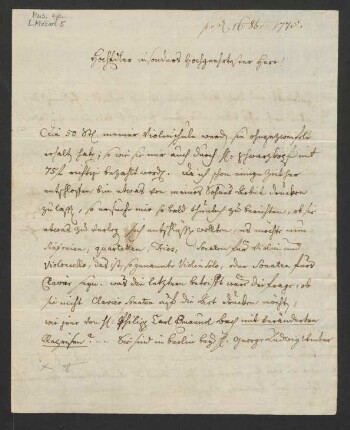 Mus. ep.
L. Mozart 5
HochEdler insonders Hochgeehrtester Herr!
Die 50 St: meiner Violinschule werden sie ohnezweifels
erhalten haben; so wie sie mir auch durch H:
75 f richtig bezahlt worden. da ich schon einige Zeit her
entschlossen bin etwas von meines Sohnes Arbeit drucken
zu lassen, so ersuche mir so bald thunlich zu berichten, ob sie
etwas zu Verlag sich entschliessen wollten. es möchte nun
Sinfonien, quartetten, Trios, Sonaten für Violin und
Violoncello, das ist, sogenannte Violinsolo, oder Sonaten fürs
Clavier seyn. was die letztern betrifft wäre die Frage, ob
sie nicht Clavier Sonaten auf die Art drucken möchten,
wie jene von H: Philipp Carl Emanuel Bach mit veränderten
Reprisen? -- Sie sind in Berlin bey H: George Ludwig Winter